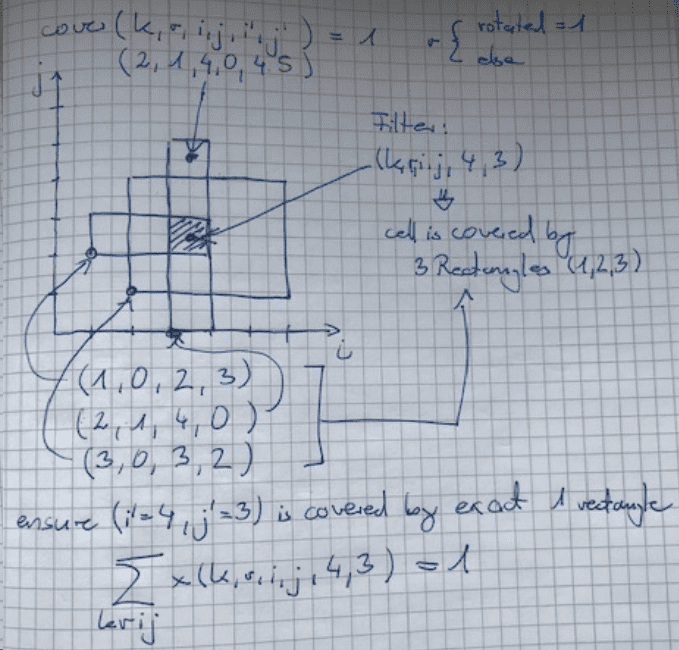 cover (k, r, i, j, i', j') = 1
r { rotated = 1
else
(2, 1, 4, 0, 4 5)
j
Filter:
(k, r, i, j, 4, 3)
cell is covered by
3 Rectangles (1,2,3)
i
(1, 0, 2, 3)
(2, 1, 4, 0)
(3, 0, 3, 2)
ensure (i'=4, j'=3) is covered by exact 1 rectangle
∑ x(k, r, i, j, 4, 3) = 1
krij